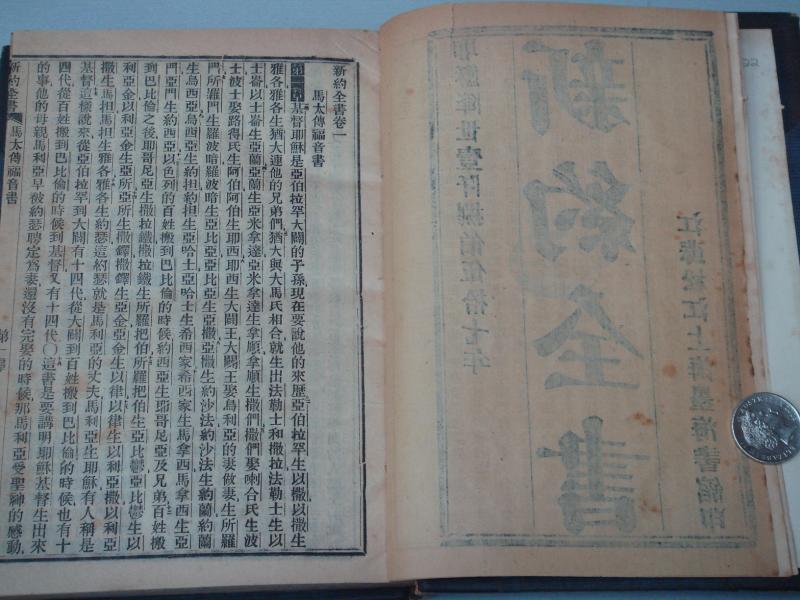 江蘇松江上海墨海書館印
新約全書
耶穌降世壹阡捌佰伍拾七年
新約全書卷一
馬太傳福音書
第一章基督耶穌是亞伯拉罕大闢的子孫現在要說他的來歷亞伯拉罕生以撒以撒生
雅各雅各生猶大連他的兄弟們猶大與大馬氏相合就生出法勒士和撒拉法勒士生以
士崙以士崙生亞蘭亞蘭生亞米拿達亞米拿達生拿順拿順生撒們撒們娶喇合氏生波
士波士娶路得氏生阿伯阿伯生耶西耶西生大闢王大闢王娶烏利亞的妻做妻生所羅
門所羅門生羅波暗羅波暗生亞比亞亞比亞生亞撒亞撒生約沙法約沙法生約蘭約蘭
生烏西亞烏西亞生約担約担生亞哈士亞哈士生希西家希西家生馬拿西馬拿西生亞
門亞門生約西亞以色列的百姓搬到巴比倫的時候約西亞生耶哥尼亞及兄弟百姓搬
到巴比倫之後耶哥尼亞生撒拉鐵撒拉鐵生所羅把伯所羅把伯生亞比鬱亞比鬱生以
利亞金以利亞金生亞所亞所生撒鐸撒鐸生亞金亞金生以律以律生以利亞撒以利亞
撒生馬担馬担生雅各雅各生約瑟這約瑟就是馬利亞的丈夫馬利亞生耶穌有人稱是
基督這樣說來從亞伯拉罕到大闢有十四代從大闢到百姓搬到巴比倫的時候也有十
四代從百姓搬到巴比倫的時候到基督又有十四代○這書是要講明耶穌基督生出來
的事他的母親馬利亞早被約瑟聘定爲妻還沒有完娶的時候那馬利亞受聖神的感動
新約全書 馬太傳福音書 第一章